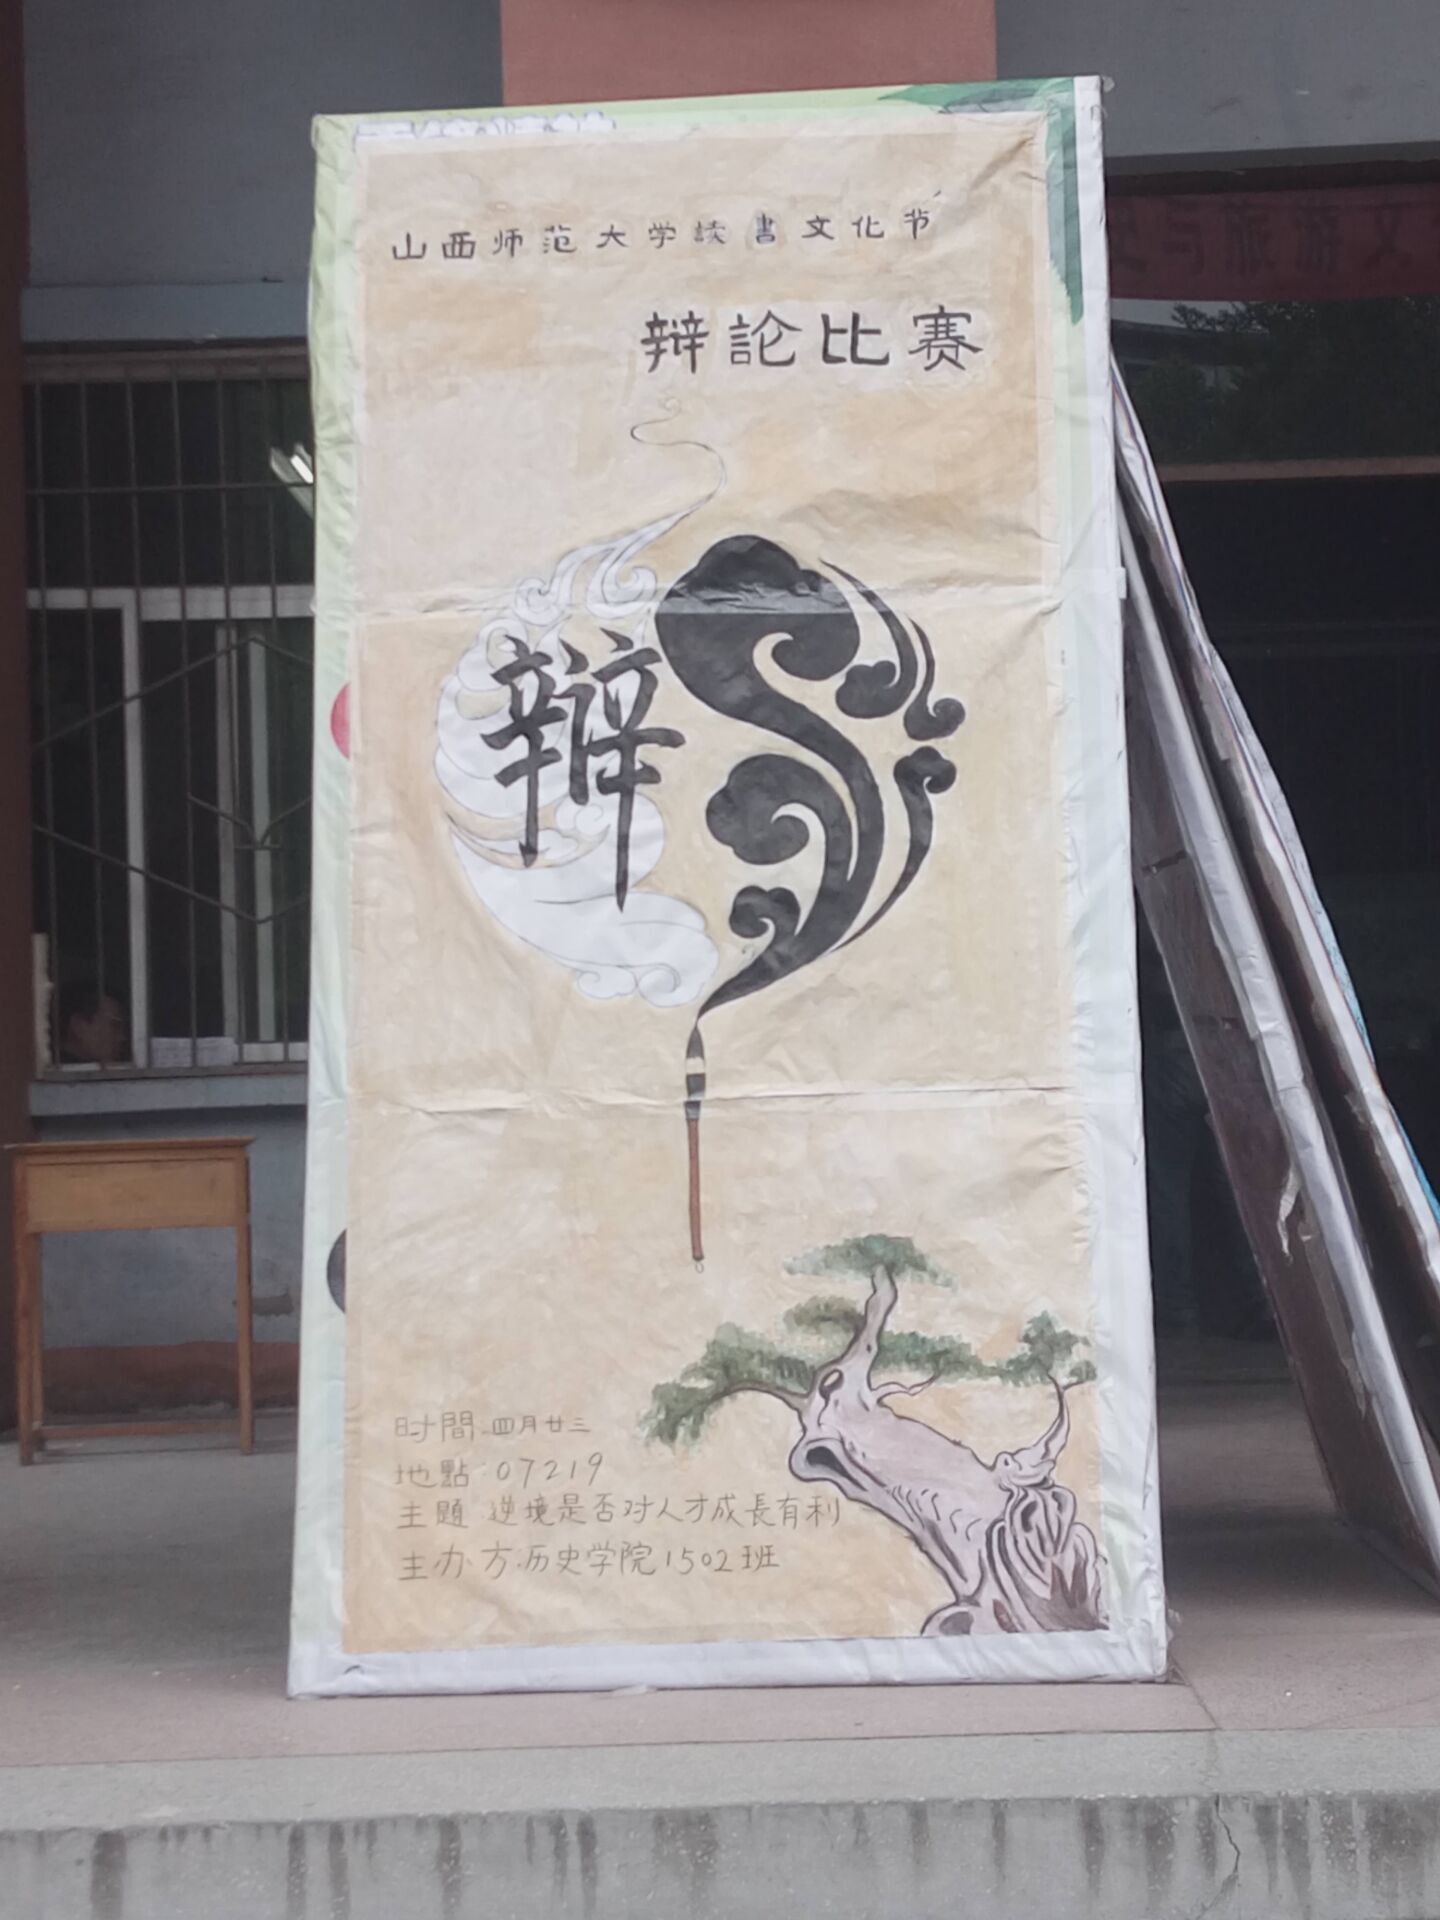 山西师范大学读書文化节
辩論比赛
辩
时間:四月廿三
地點:07219
主題 逆境是否对人才成長有利
主办方:历史学院1502班
史与旅游文